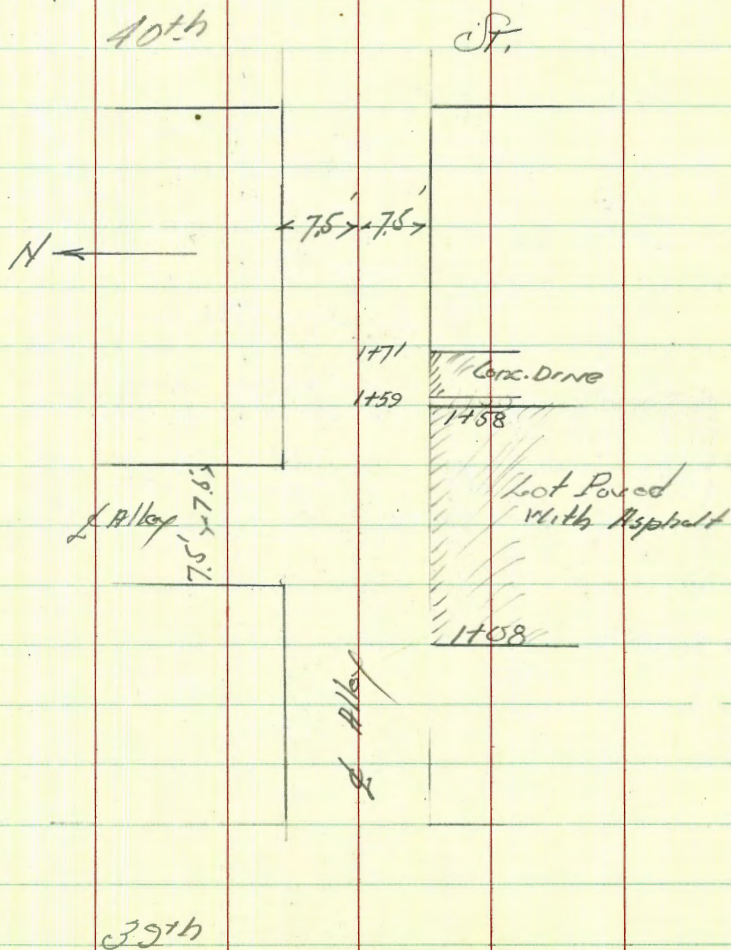 40th St.
7.5' 7.5'
N
1+71
Conc. Drive
1+59
1+58
Lot Paved
With Asphalt
7.5' 7.5'
℄ Alley
1+08
℄ Alley
39th